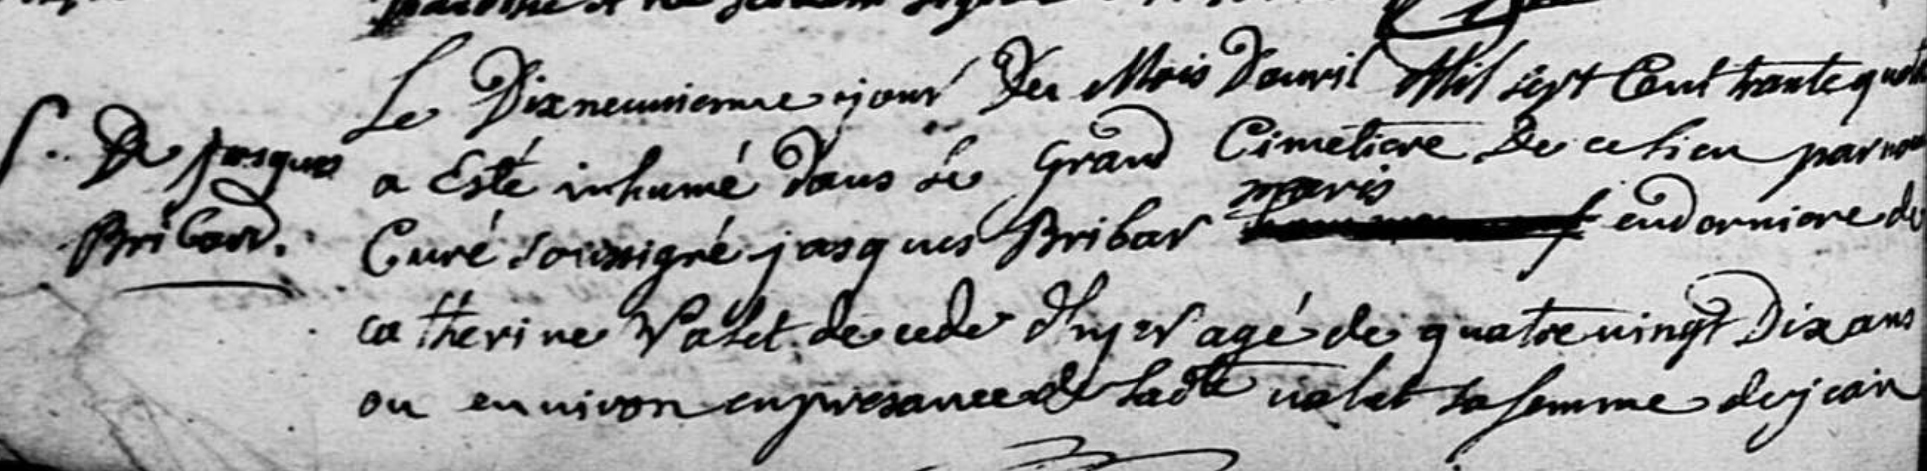 Le Dixneuuieme jour Du Mois Dauril Mil sept Cent trante quatre
S. De jasques
Bribard.
a Esté inhumé dans Le Grand Cimetiere De ce lieu par nous
Curé soussigné jasques Bribar maris endorniere de
catherine Valet decede d'hyer agé de quatre uingt Dix ans
ou enuiron en presance de Ladte ualet sa femme de jean